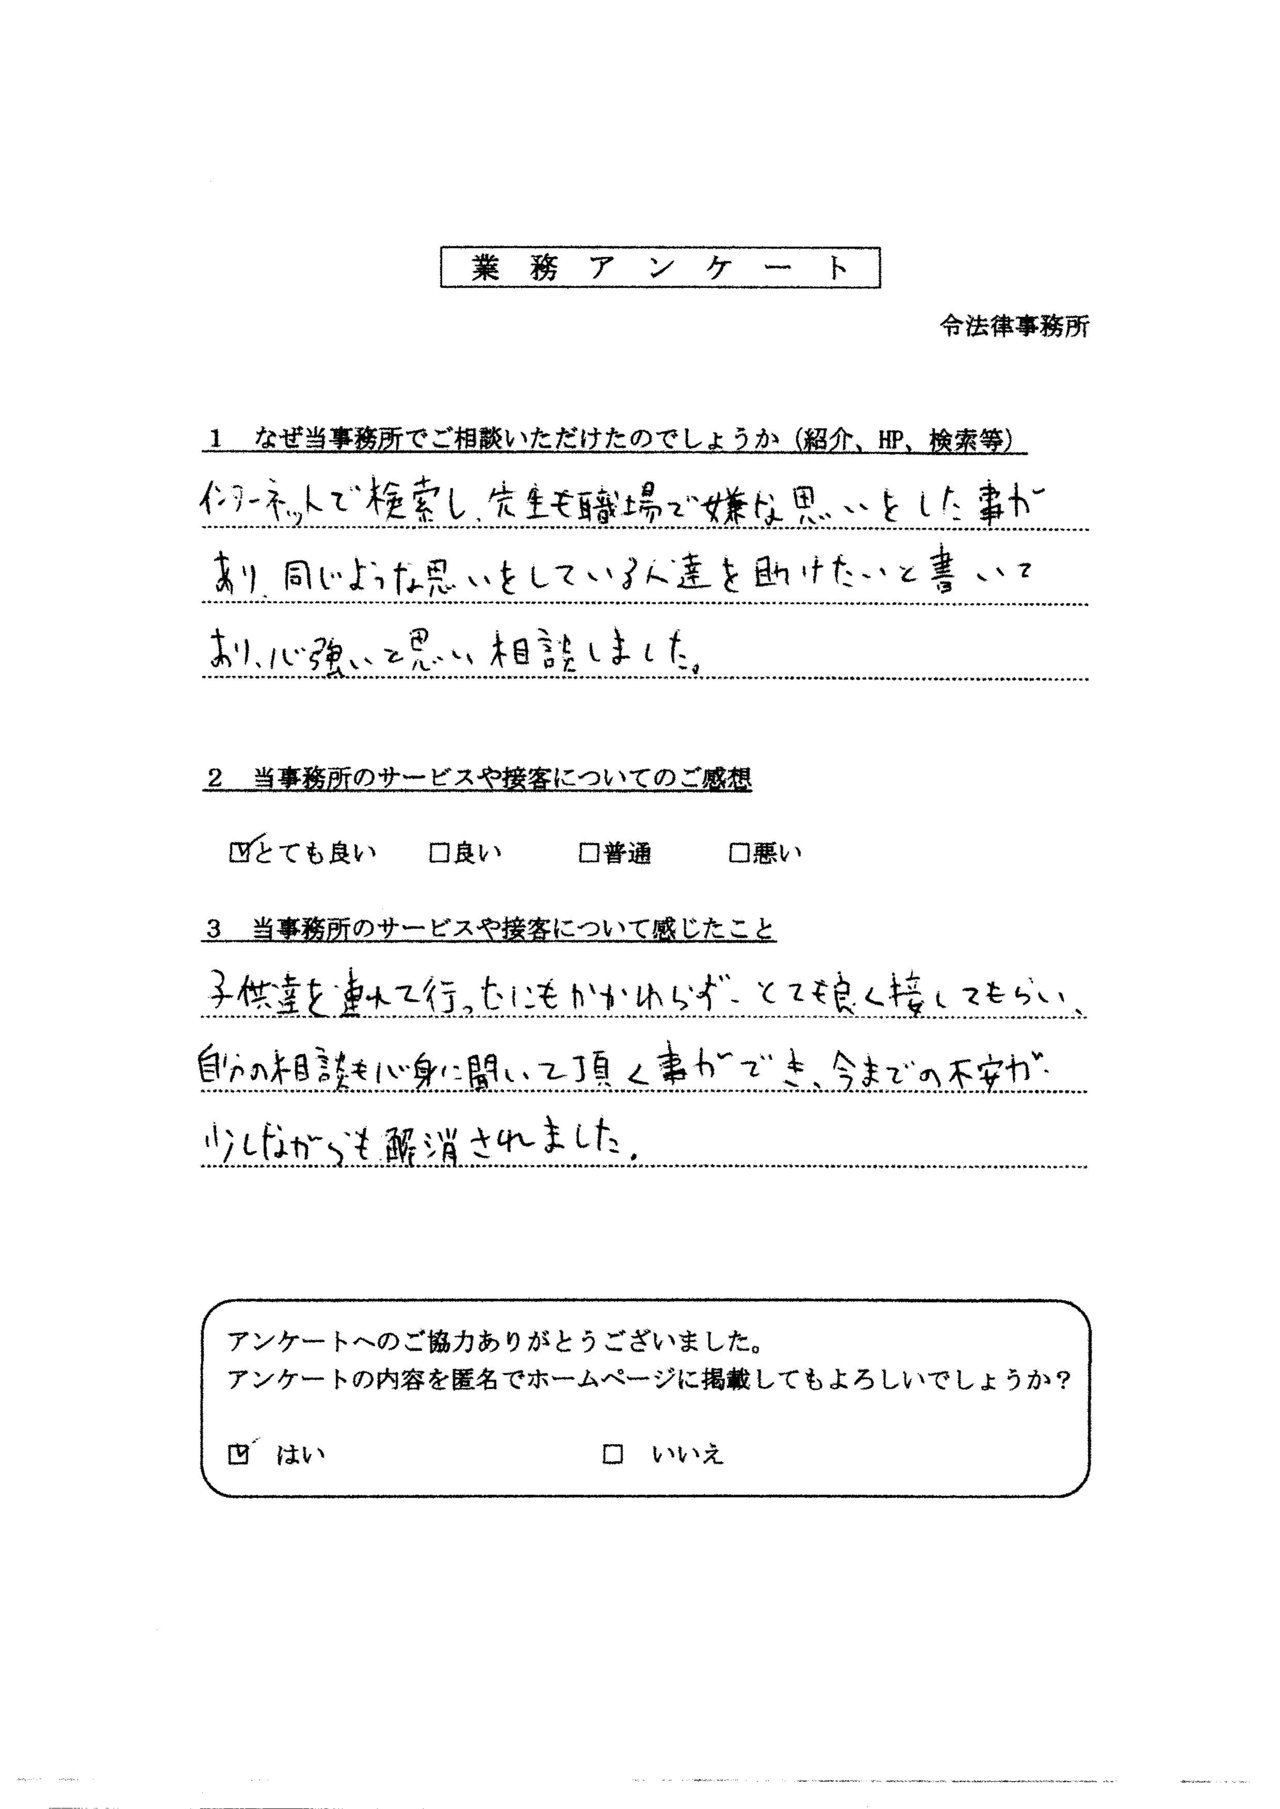 業務アンケート
令法律事務所
1 なぜ当事務所でご相談いただけたのでしょうか（紹介、HP、検索等）
インターネットで検索し、先生も職場で嫌な思いをした事が
あり、同じような思いをしている人達を助けたいと書いて
あり、心強いと思い相談しました。
2 当事務所のサービスや接客についてのご感想
☑とても良い □良い □普通 □悪い
3 当事務所のサービスや接客について感じたこと
子供達を連れて行ったにもかかわらず、とても良く接してもらい、
自分の相談も心身に聞いて頂く事ができ、今までの不安が
少しながらも解消されました。
アンケートへのご協力ありがとうございました。
アンケートの内容を匿名でホームページに掲載してもよろしいでしょうか？
☑ はい □ いいえ